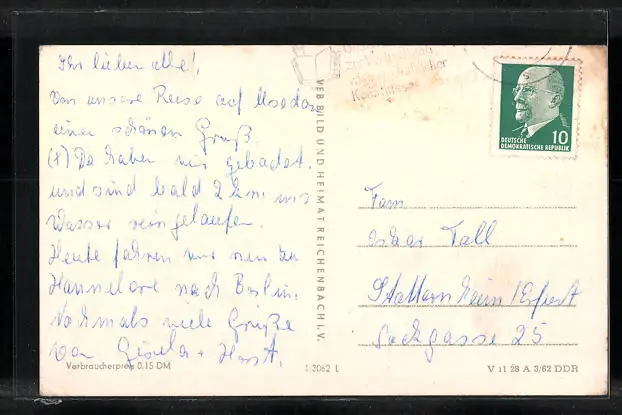 Ihr lieben alle!,
Von unsere Reise auf Usedom
einen schönen Gruß.
(X) Da haben wir gebadet.
und sind bald 2 km ins
Wasser reingelaufen.
Heute fahren wir nun zu
Hannelore nach Berlin.
Nochmals viele Grüße
von Gisela + Horst.
Verbraucherpreis 0.15 DM
VEB BILD UND HEIMAT REICHENBACH I. V.
1 3062 L
10
DEUTSCHE
DEMOKRATISCHE REPUBLIK
Fam
Oskar Fall
Stotternheim / Erfurt
Sackgasse 25
V 11 28 A 3/62 DDR